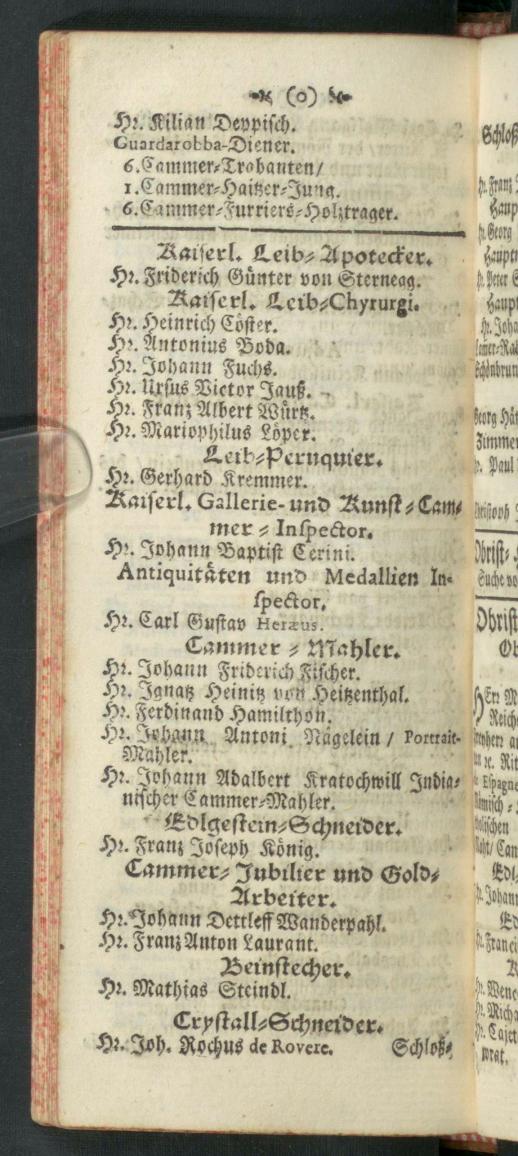 (0)
Hr. Kilian Deppisch.
Guardarobba-Diener.
6. Cammer-Trabanten/
1. Cammer-Haitzer-Jung.
6. Cammer-Furriers-Holztrager.
Kaiserl. Leib-Apotecker.
Hr. Friderich Günter von Sternegg.
Kaiserl. Leib-Chyrurgi.
Hr. Heinrich Cöster.
Hr. Antonius Boda.
Hr. Johann Fuchs.
Hr. Ursus Victor Jauß.
Hr. Franz Albert Würtz.
Hr. Mariophilus Löper.
Leib-Peruquier.
Hr. Gerhard Kremmer.
Kaiserl. Gallerie- und Kunst-Cam-
mer-Inspector.
Hr. Johann Baptist Cerini.
Antiquitäten und Medallien In-
spector.
Hr. Carl Gustav Heræus.
Cammer-Mahler.
Hr. Johann Friderich Fischer.
Hr. Ignatz Heinitz von Heitzenthal.
Hr. Ferdinand Hamilthon.
Hr. Johann Antoni Nägelein / Portrait-
Mahler.
Hr. Johann Adalbert Kratochwill India-
nischer Cammer-Mahler.
Edlgestein-Schneider.
Hr. Franz Joseph König.
Cammer-Jubilier und Gold-
Arbeiter.
Hr. Johann Dettleff Wanderpahl.
Hr. Franz Anton Laurant.
Beinstecher.
Hr. Mathias Steindl.
Crystall-Schneider.
Hr. Joh. Rochus de Rovere. Schloß-